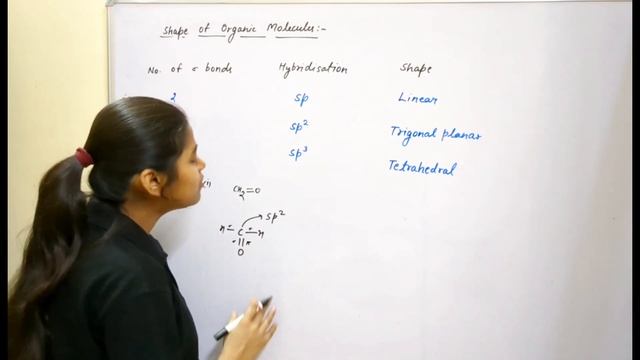 Shape of Organic Molecules:-
No. of σ bonds Hybridisation Shape
2 sp Linear
sp² Trigonal planar
sp³ Tetrahedral
CH₂=O
sp²
H C H
O